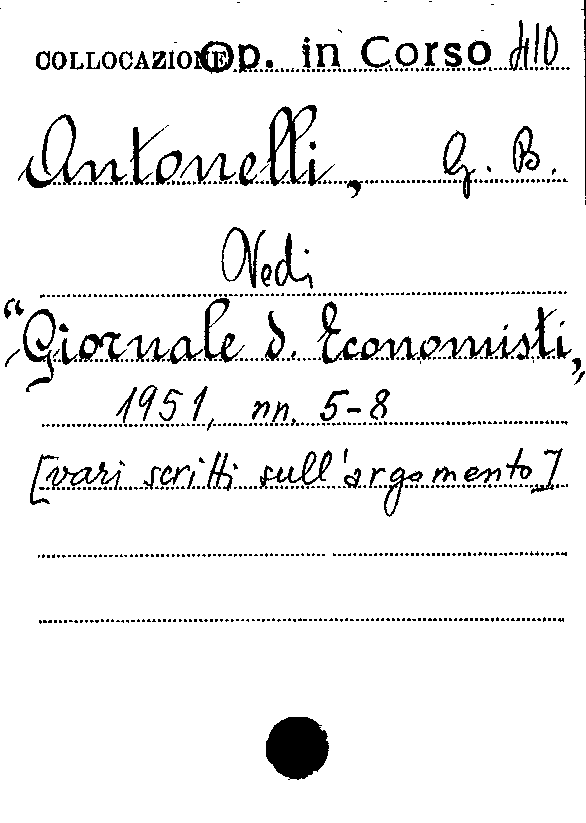 COLLOCAZIONE Op. in Corso 410
Antonelli, G. B.
Vedi
“Giornale d. Economisti„
1951, nn. 5-8
[vari scritti sull'argomento]